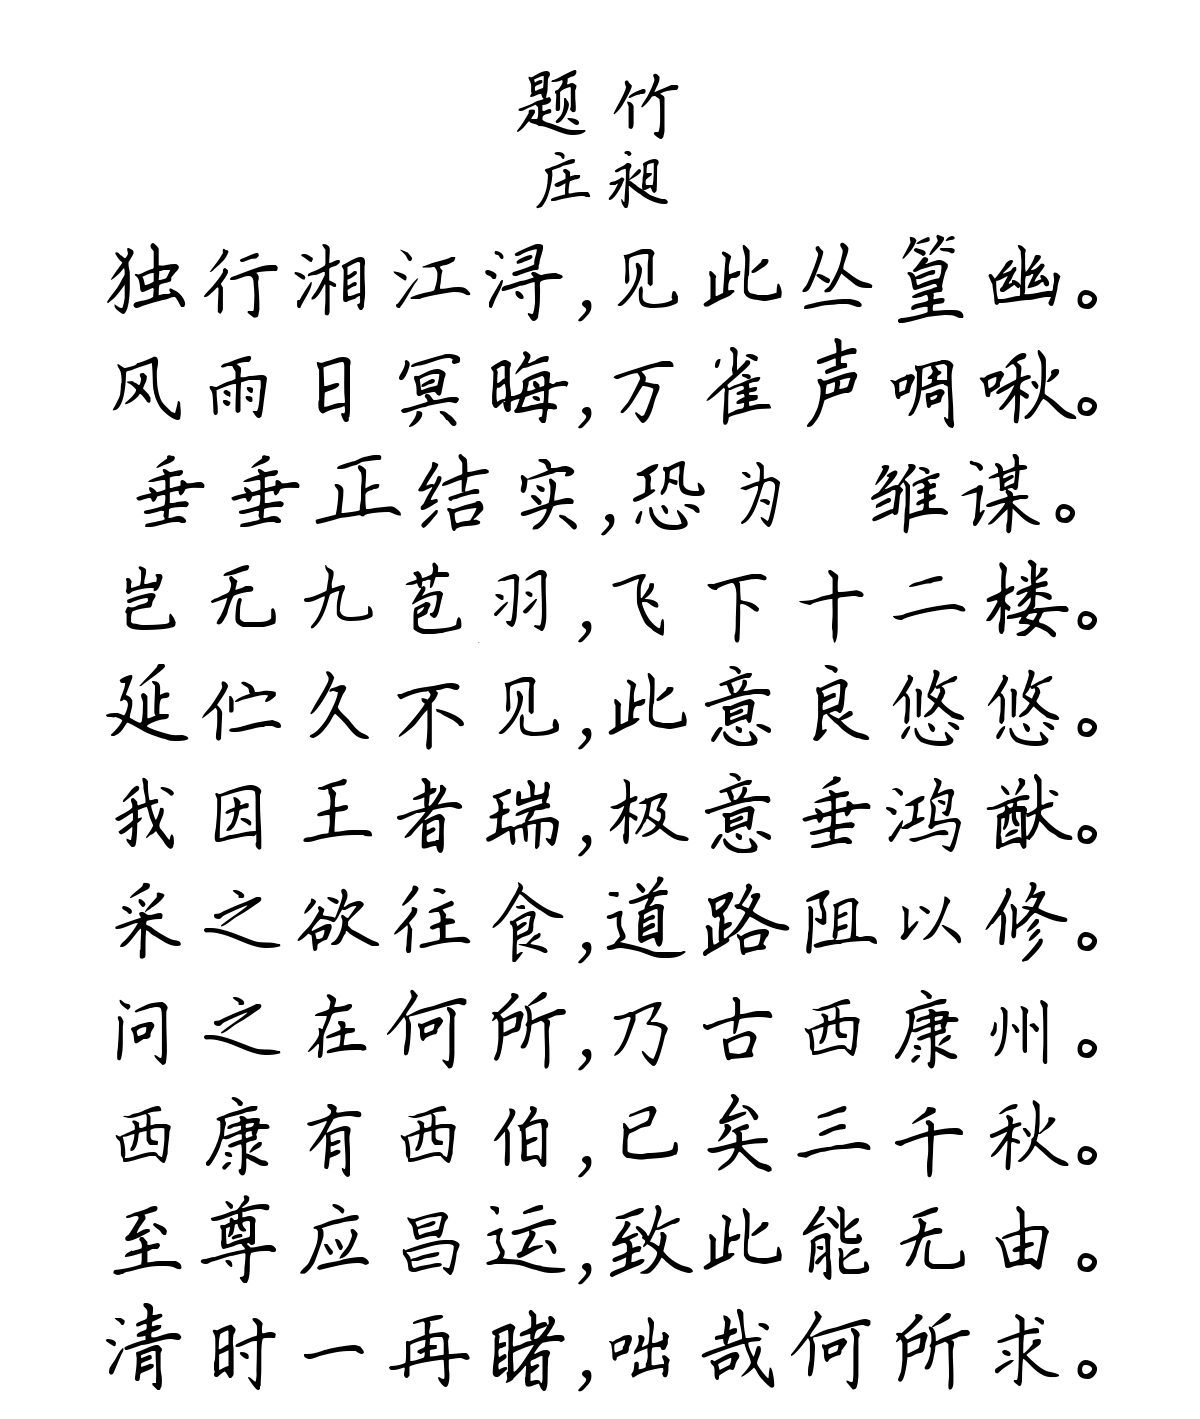 题竹
庄昶
独行湘江浔,见此丛篁幽。
风雨日冥晦,万雀声啁啾。
垂垂正结实,恐为 雏谋。
岂无九苞羽,飞下十二楼。
延伫久不见,此意良悠悠。
我因王者瑞,极意垂鸿猷。
采之欲往食,道路阻以修。
问之在何所,乃古西康州。
西康有西伯,已矣三千秋。
至尊应昌运,致此能无由。
清时一再睹,咄哉何所求。